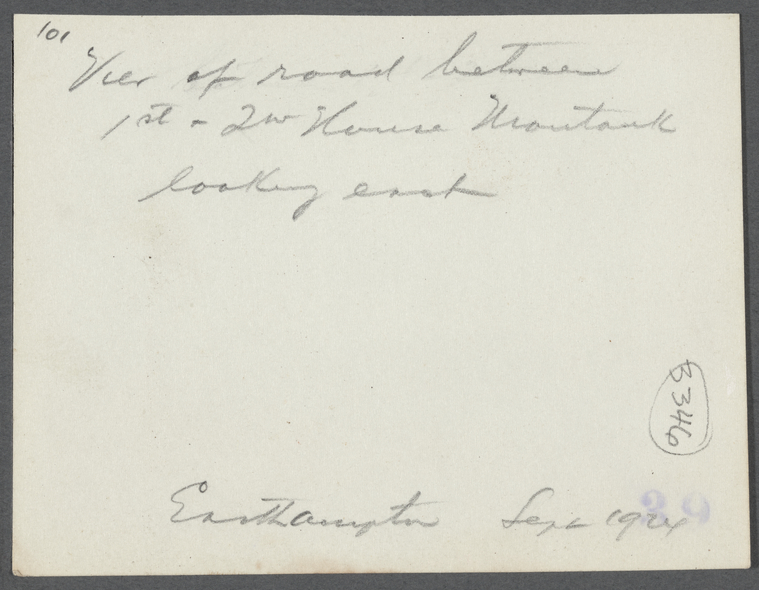 101
View of road between
1st & 2nd House Montauk
looking east
B346
Easthampton Sept 1924
39